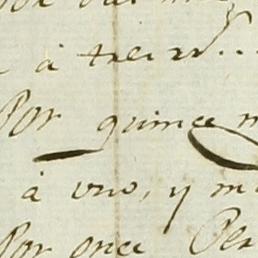 à trei
Por quince
à uno, y m
Por once Pe